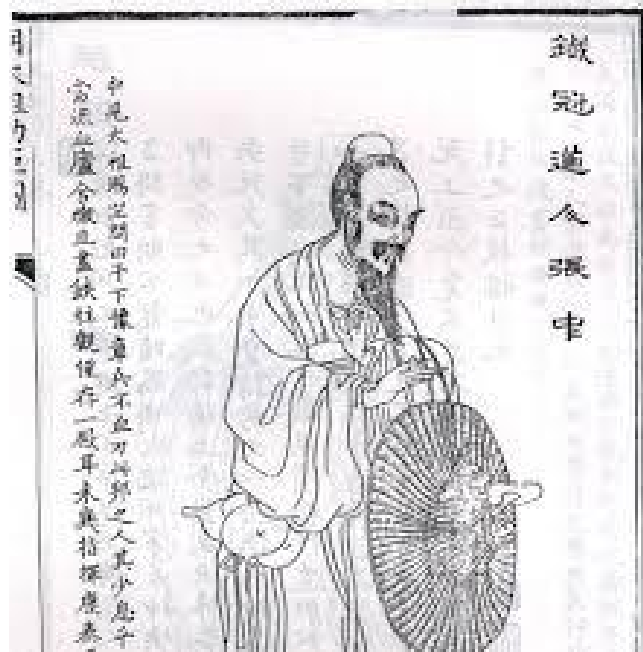 鐵冠道人張中
中見太祖賜坐問曰予下豫章兵不血刃此邦之人其少息乎
當流血廬舍燬且盡鐵柱觀僅存一殿耳未幾指揮康泰